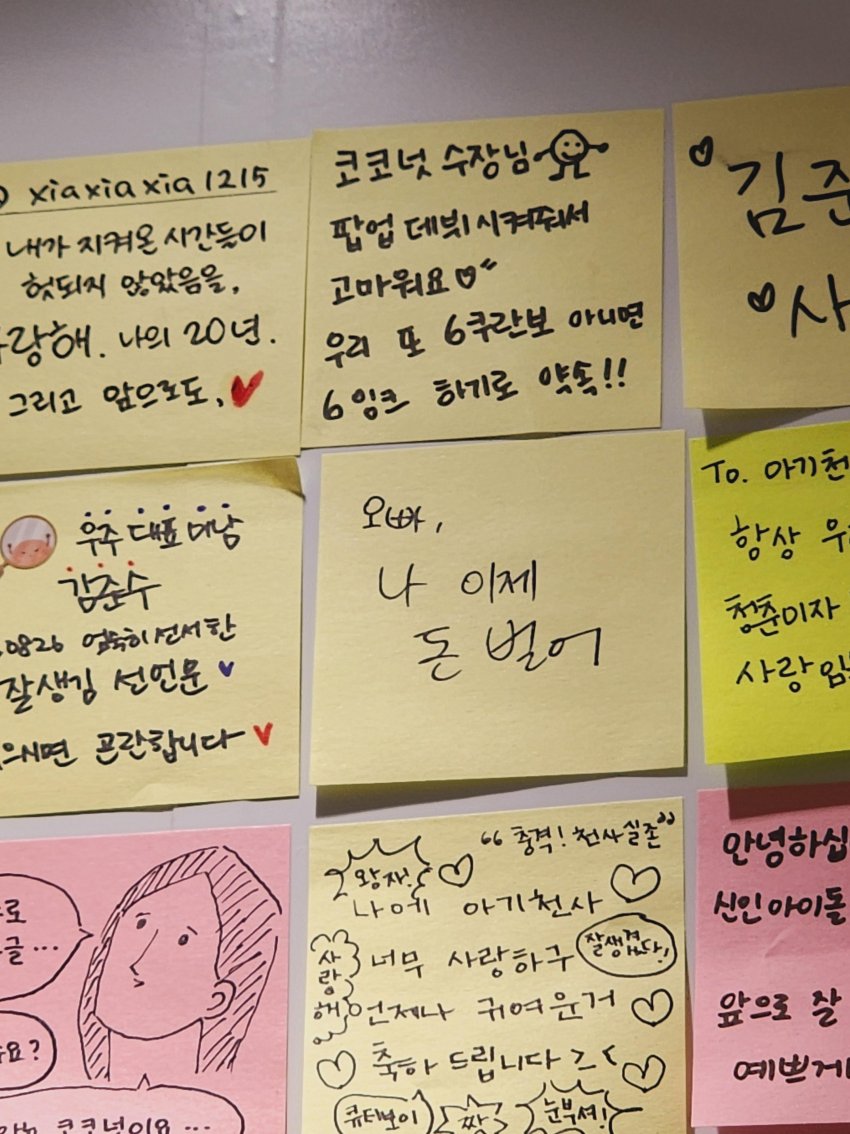 xiaxiaxia1215
내가 지켜온 시간들이
헛되지 않았음을,
사랑해. 나의 20년.
그리고 앞으로도, ♥
코코넛 수장님
팝업 데뷔시켜줘서
고마워요♡
우리 또 6쿠란보 아니면
6잉크 하기로 약속!!
♡김준
♡사
우주대표미남
김준수
0826 엄숙히 선서한
잘생김 선언문♥
곤란합니다♥
오빠,
나 이제
돈 벌어
To. 아기천
항상 우리
청춘이자
사랑
코코넛이요...
"충격! 천사실존"
왕자!
나에 아기천사
너무 사랑하구
잘생겼다!
사랑해
언제나 귀여운거
축하 드립니다
큐티보이
짱
눈부셔!
안녕하십
신인아이돌
앞으로 잘
예쁘게